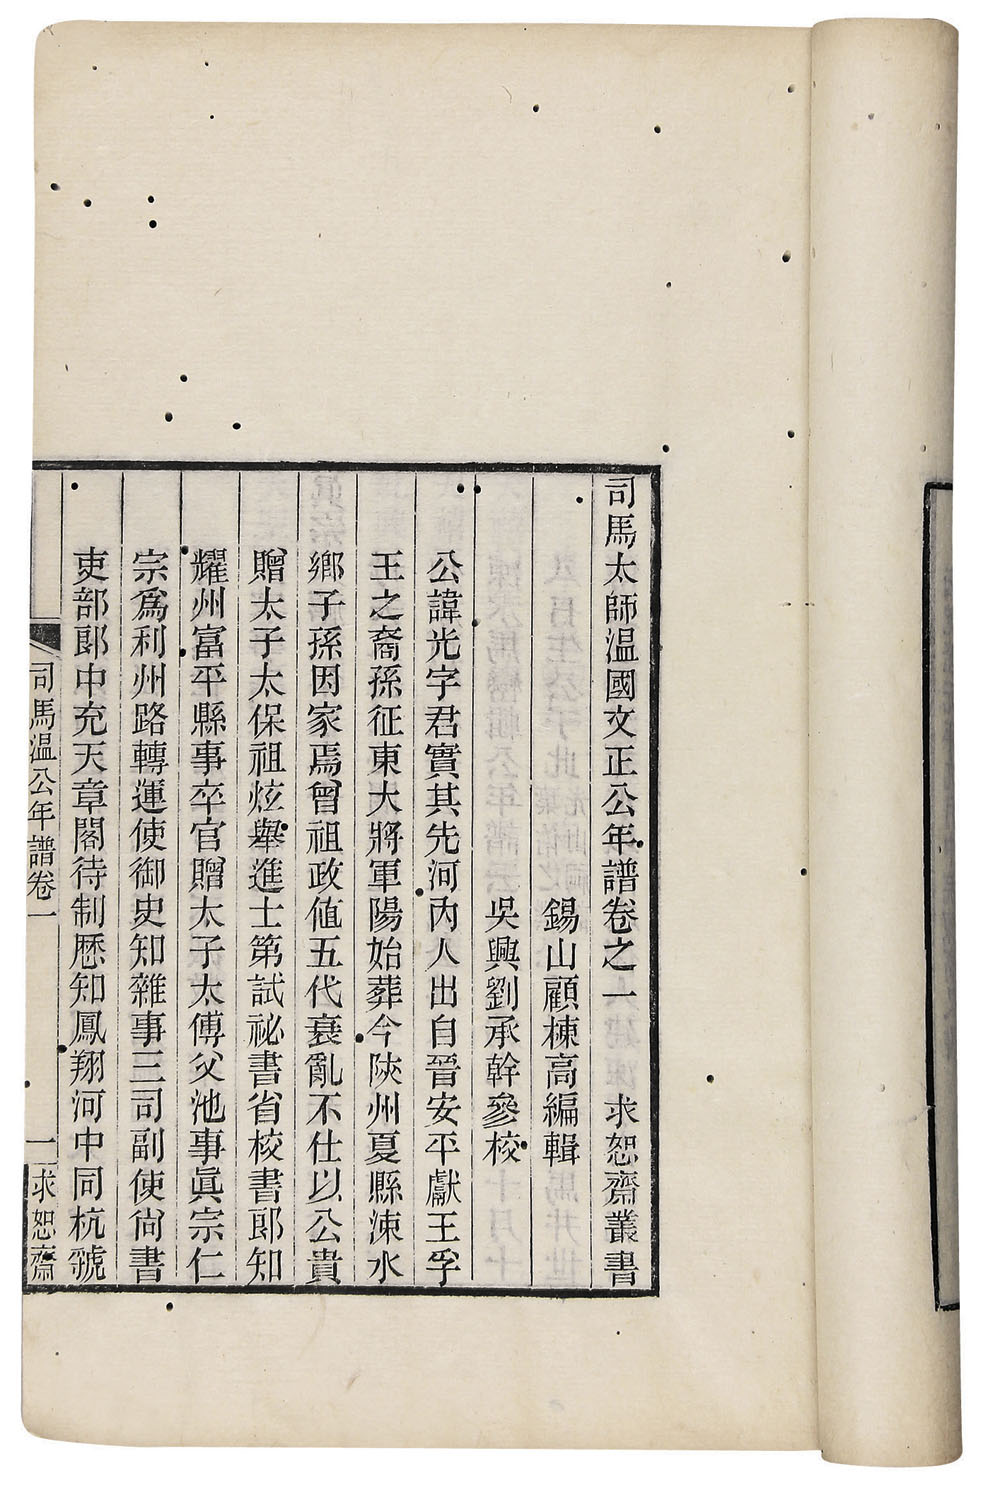 司馬太師溫國文正公年譜卷之一　求恕齋叢書
錫山顧棟高編輯
吳興劉承幹參校
公諱光字君實其先河內人出自晉安平獻王孚
王之裔孫征東大將軍陽始葬今陜州夏縣涑水
鄉子孫因家焉曾祖政值五代衰亂不仕以公貴
贈太子太保祖炫舉進士第試祕書省校書郎知
耀州富平縣事卒官贈太子太傅父池事眞宗仁
宗爲利州路轉運使御史知雜事三司副使尙書
吏部郎中充天章閣待制歷知鳳翔河中同杭虢
司馬溫公年譜卷一　一　求恕齋